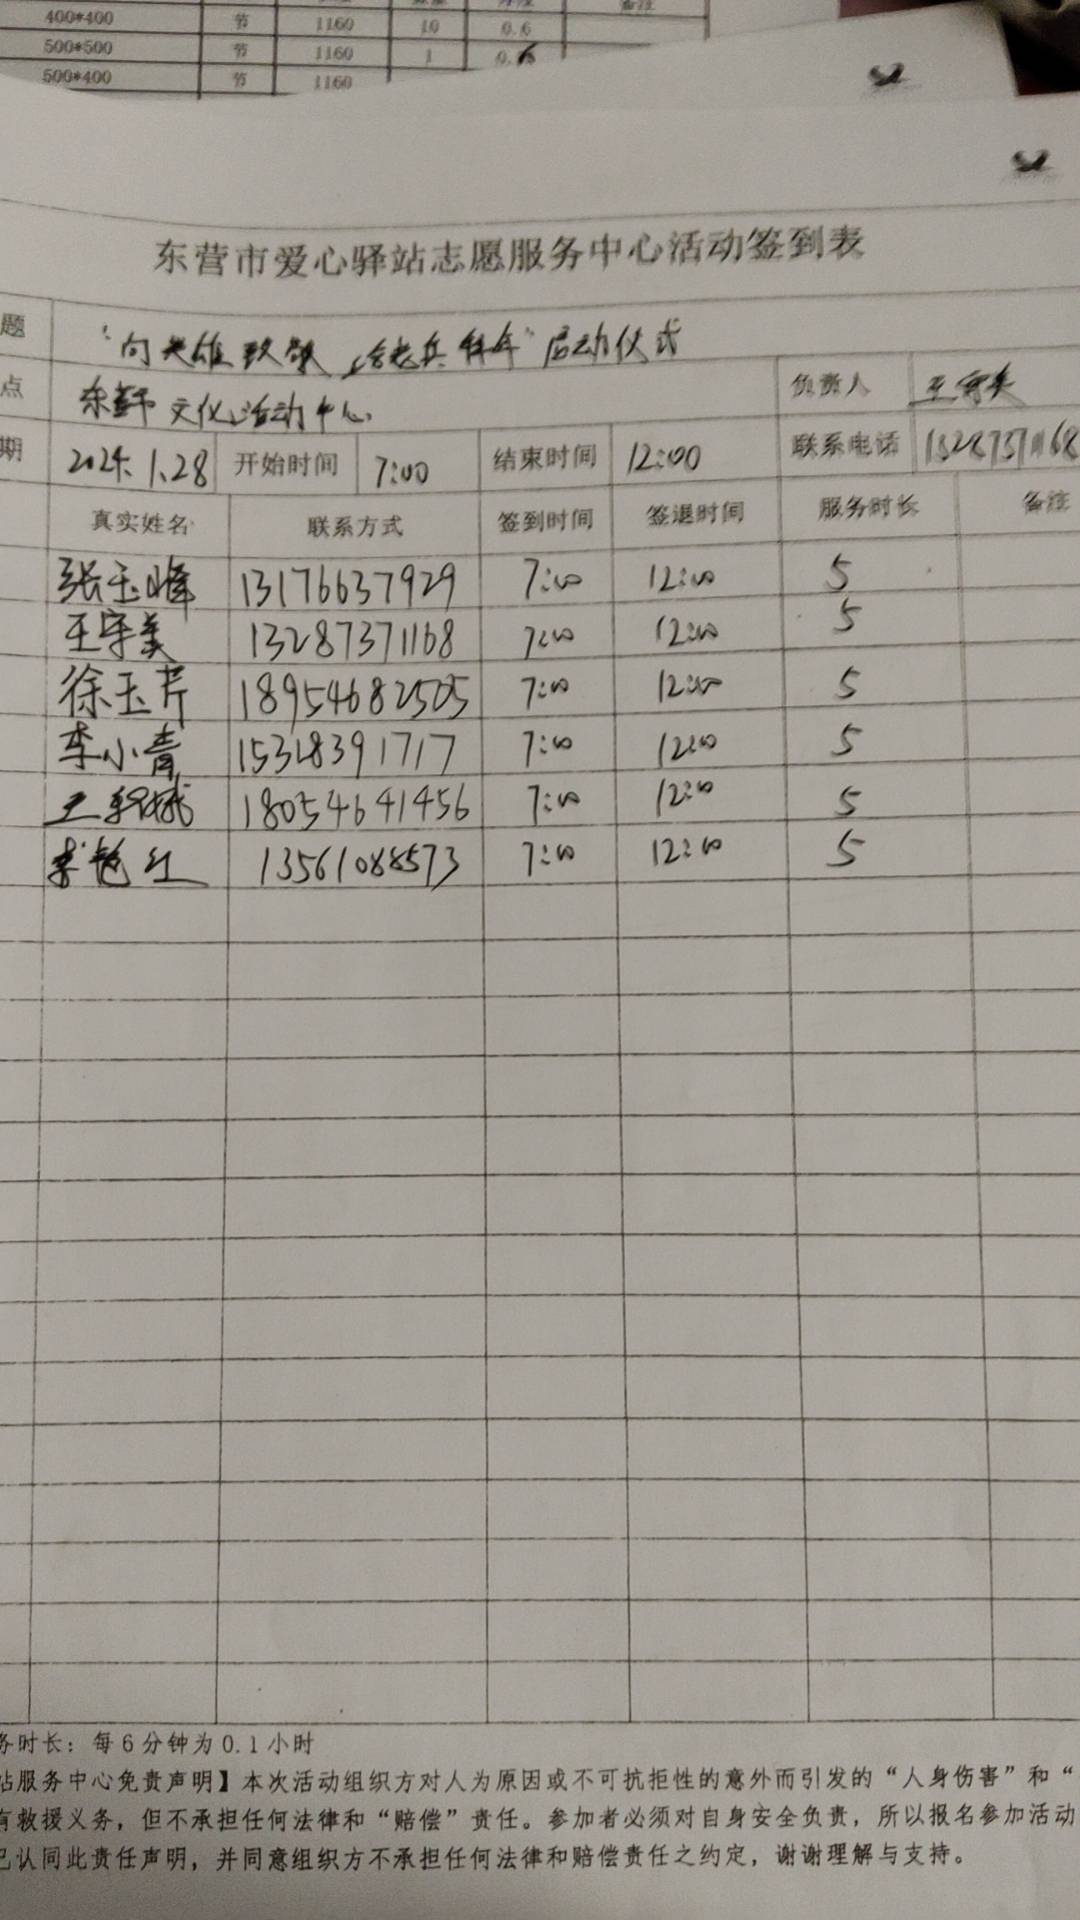 400*400 节 1160 10 0.6
500*500 节 1160 1 0.
500*400 节 1160
东营市爱心驿站志愿服务中心活动签到表
题 “向英雄致敬 给老兵拜年”启动仪式
点 文化活动中心 负责人 王守美
期 2024.1.28 开始时间 7:00 结束时间 12:00 联系电话 13287371168
真实姓名 联系方式 签到时间 签退时间 服务时长 备注
张玉峰 13176637929 7:00 12:00 5
王守美 13287371168 7:00 12:00 5
徐玉芹 18954682505 7:00 12:00 5
李小青 15318391717 7:00 12:00 5
王 18054641456 7:00 12:00 5
李艳红 13561088573 7:00 12:00 5
务时长：每6分钟为0.1小时
站服务中心免责声明】本次活动组织方对人为原因或不可抗拒性的意外而引发的“人身伤害”和“
有救援义务，但不承担任何法律和“赔偿”责任。参加者必须对自身安全负责，所以报名参加活动
已认同此责任声明，并同意组织方不承担任何法律和赔偿责任之约定，谢谢理解与支持。